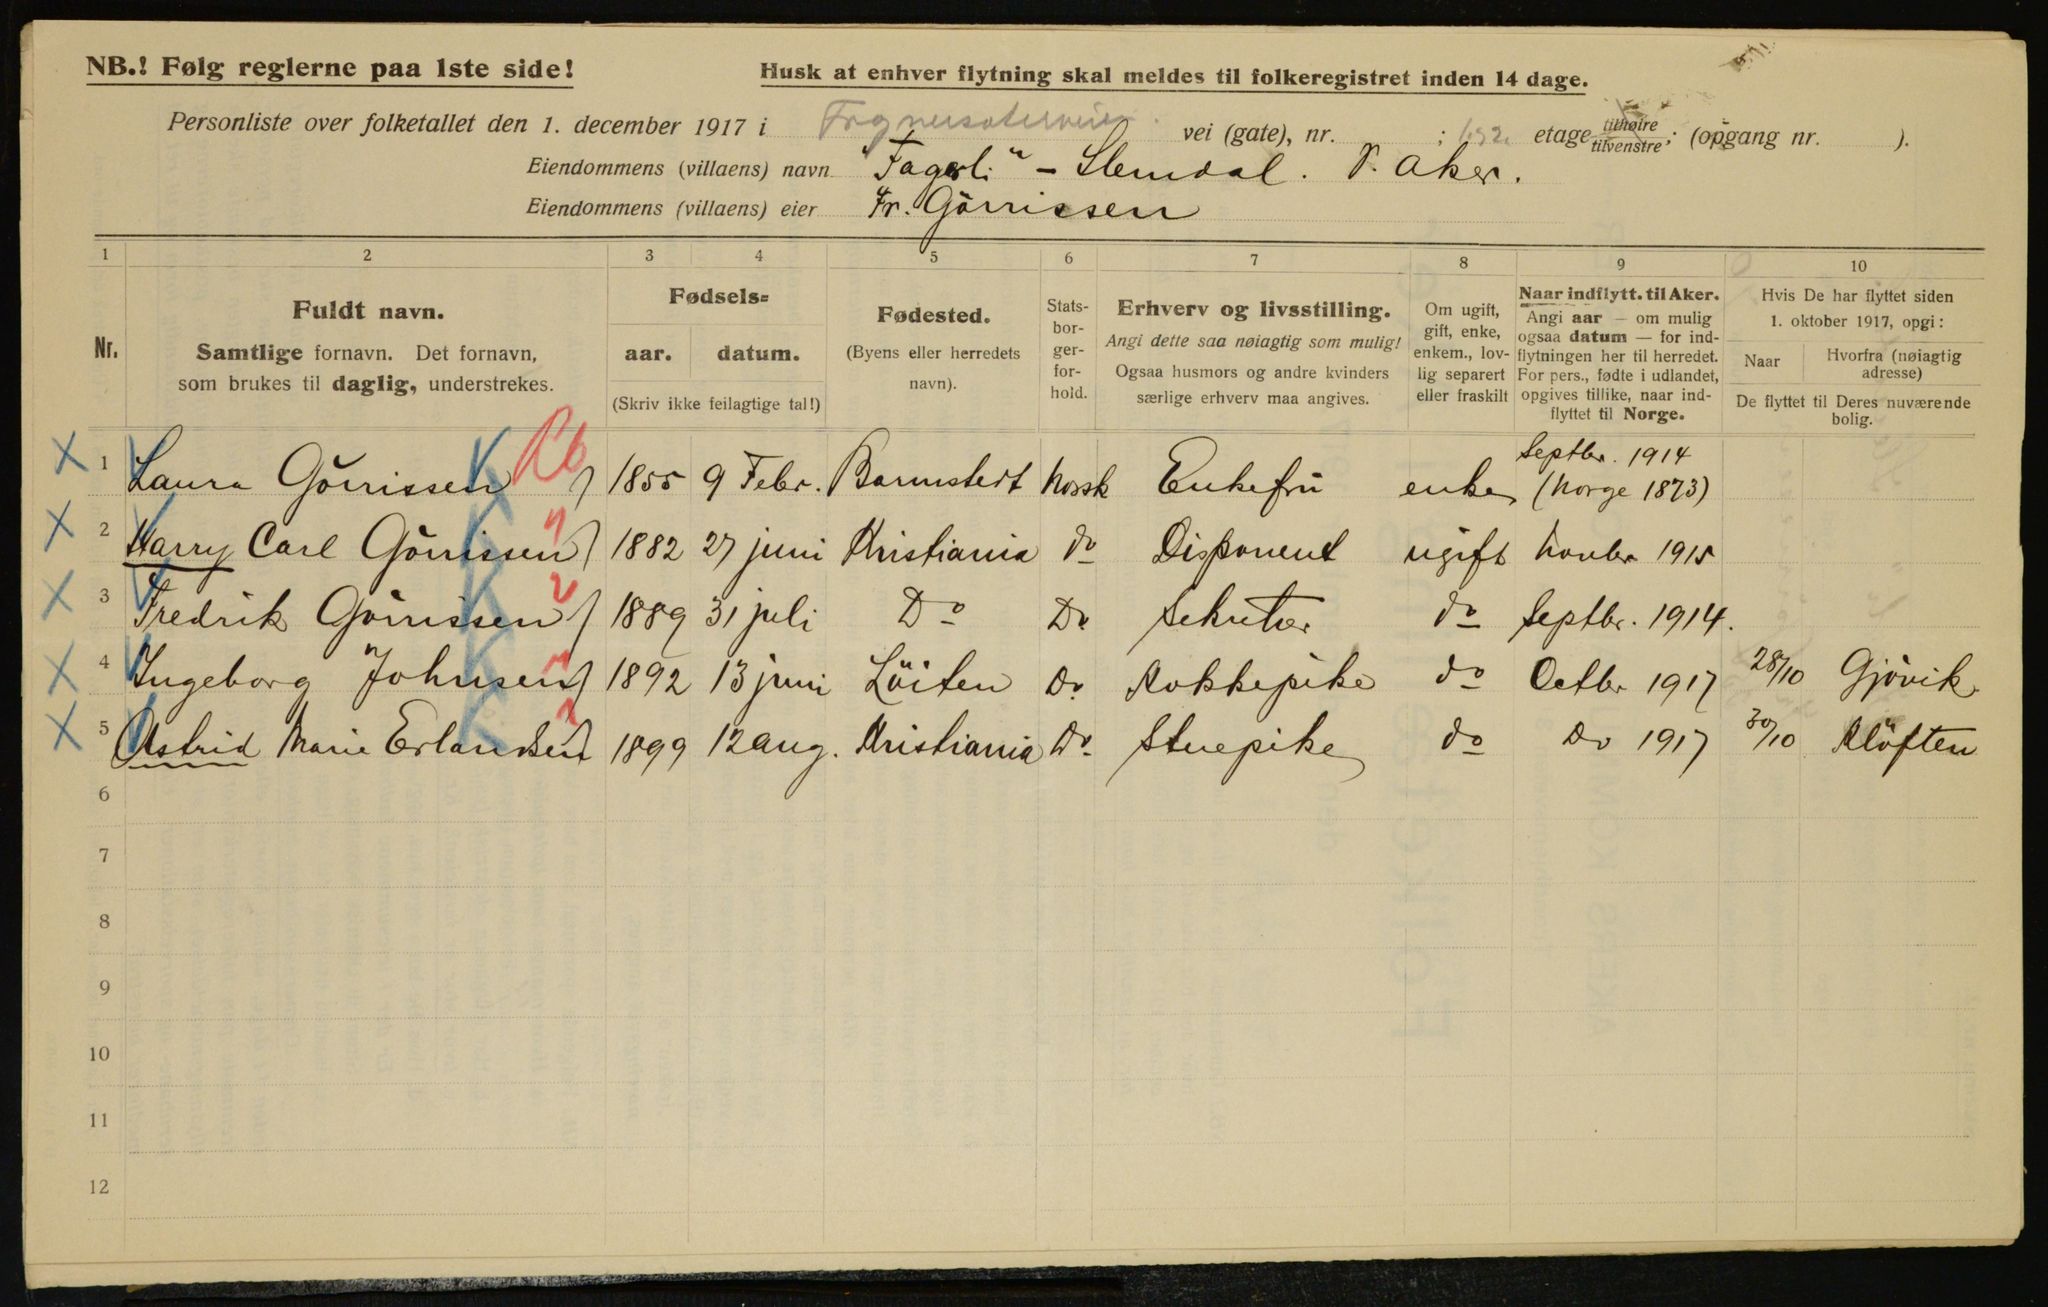 NB.! Følg reglerne paa 1ste side!
Husk at enhver flytning skal meldes til folkeregistret inden 14 dage.
Personliste over folketallet den 1. december 1917 i Frognersæterveien. vei (gate), nr. ; 1 og 2. etage tilhøire tilvenstre ; (opgang nr. ).
Eiendommens (villaens) navn "Fagerli" – Slemdal. V. Aker.
Eiendommens (villaens) eier Fr. Görrissen
1 2 3 4 5 6 7 8 9 10
Nr.
Fuldt navn.
Samtlige fornavn. Det fornavn,
som brukes til daglig, understrekes.
Fødsels=
aar. datum.
(Skriv ikke feilagtige tal!)
Fødested.
(Byens eller herredets
navn).
Stats-
bor-
ger-
for-
hold.
Erhverv og livsstilling.
Angi dette saa nøiagtig som mulig!
Ogsaa husmors og andre kvinders
særlige erhverv maa angives.
Om ugift,
gift, enke,
enkem., lov-
lig separert
eller fraskilt
Naar indflytt. til Aker.
Angi aar — om mulig
ogsaa datum — for ind-
flytningen her til herredet.
For pers., fødte i udlandet,
opgives tillike, naar ind-
flyttet til Norge.
Hvis De har flyttet siden
1. oktober 1917, opgi:
Naar Hvorfra (nøiagtig
adresse)
De flyttet til Deres nuværende
bolig.
Septbr. 1914
1 Laura Görrissen 1855 9 Febr. Barmstedt Norsk Enkefru enke (Norge 1873)
2 Harry Carl Görrissen 1882 27 juni Kristiania do Disponent ugift Novbr 1915
3 Fredrik Görrissen 1889 31 juli Do Do Sekretær do Septbr. 1914.
4 Ingeborg Johnsen 1892 13 juni Löiten Do Kokkepike do Octbr 1917 28/10 Gjövik
5 Astrid Marie Erlandsen 1899 12 aug. Kristiania Do Stuepike do Do 1917 30/10 Klöften
6
7
8
9
10
11
12